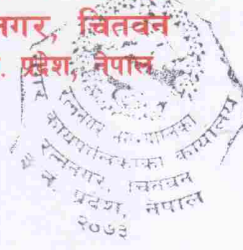 नगर, चितवन
. प्रदेश, नेपाल
रत्ननगर नगरपालिका
नगर कार्यपालिकाको कार्यालय
रत्ननगर, चितवन
प्रदेश, नेपाल
२०७३